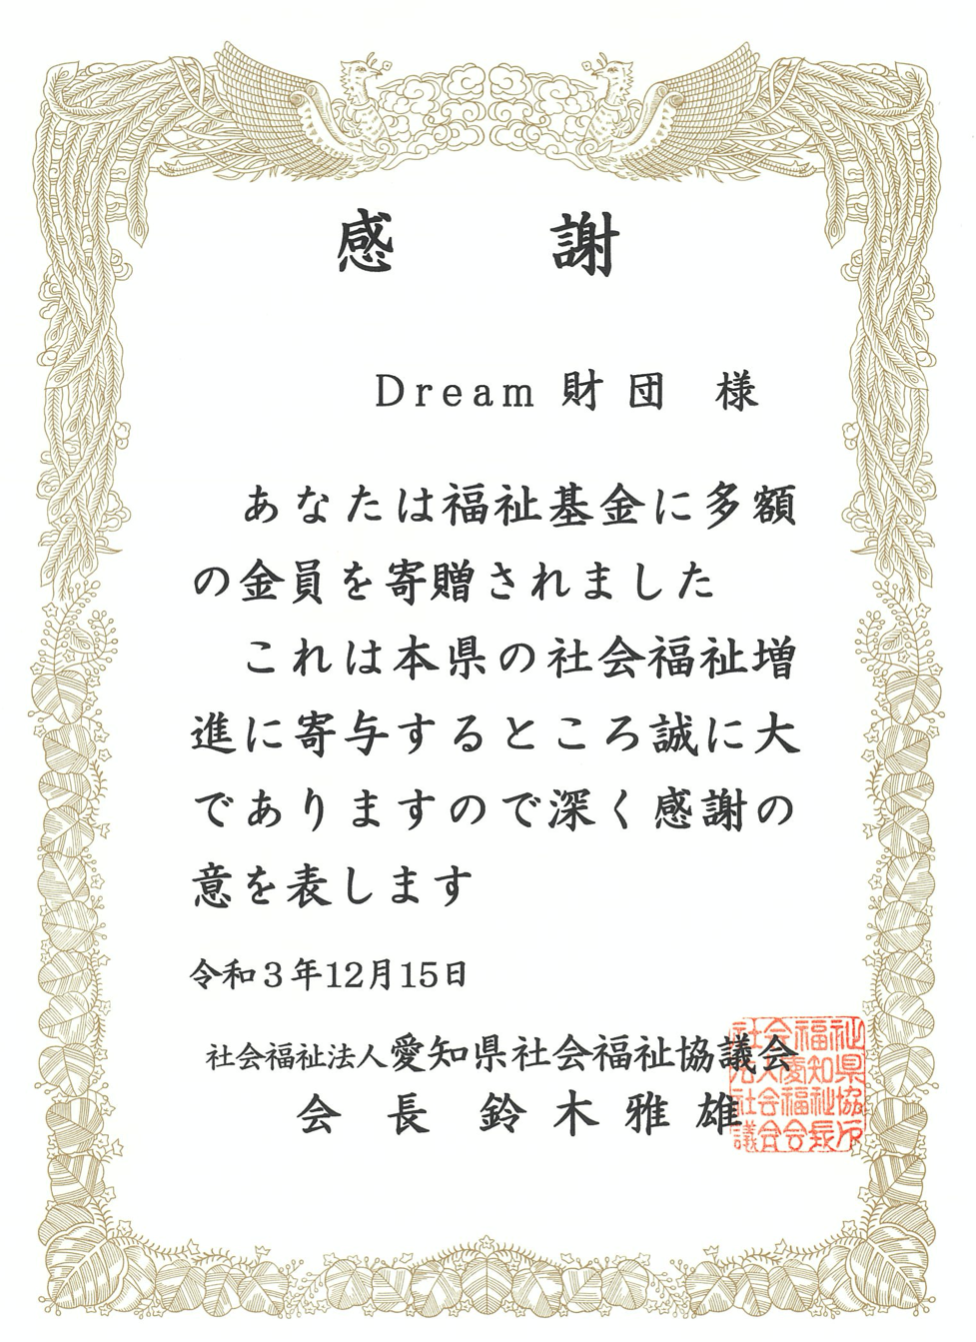 感 謝
Dream財団 様
あなたは福祉基金に多額
の金員を寄贈されました
これは本県の社会福祉増
進に寄与するところ誠に大
でありますので深く感謝の
意を表します
令和3年12月15日
社会福祉法人愛知県社会福祉協議会
会長 鈴木雅雄
社会福祉
法人愛知県
社会福祉協
議会会長印